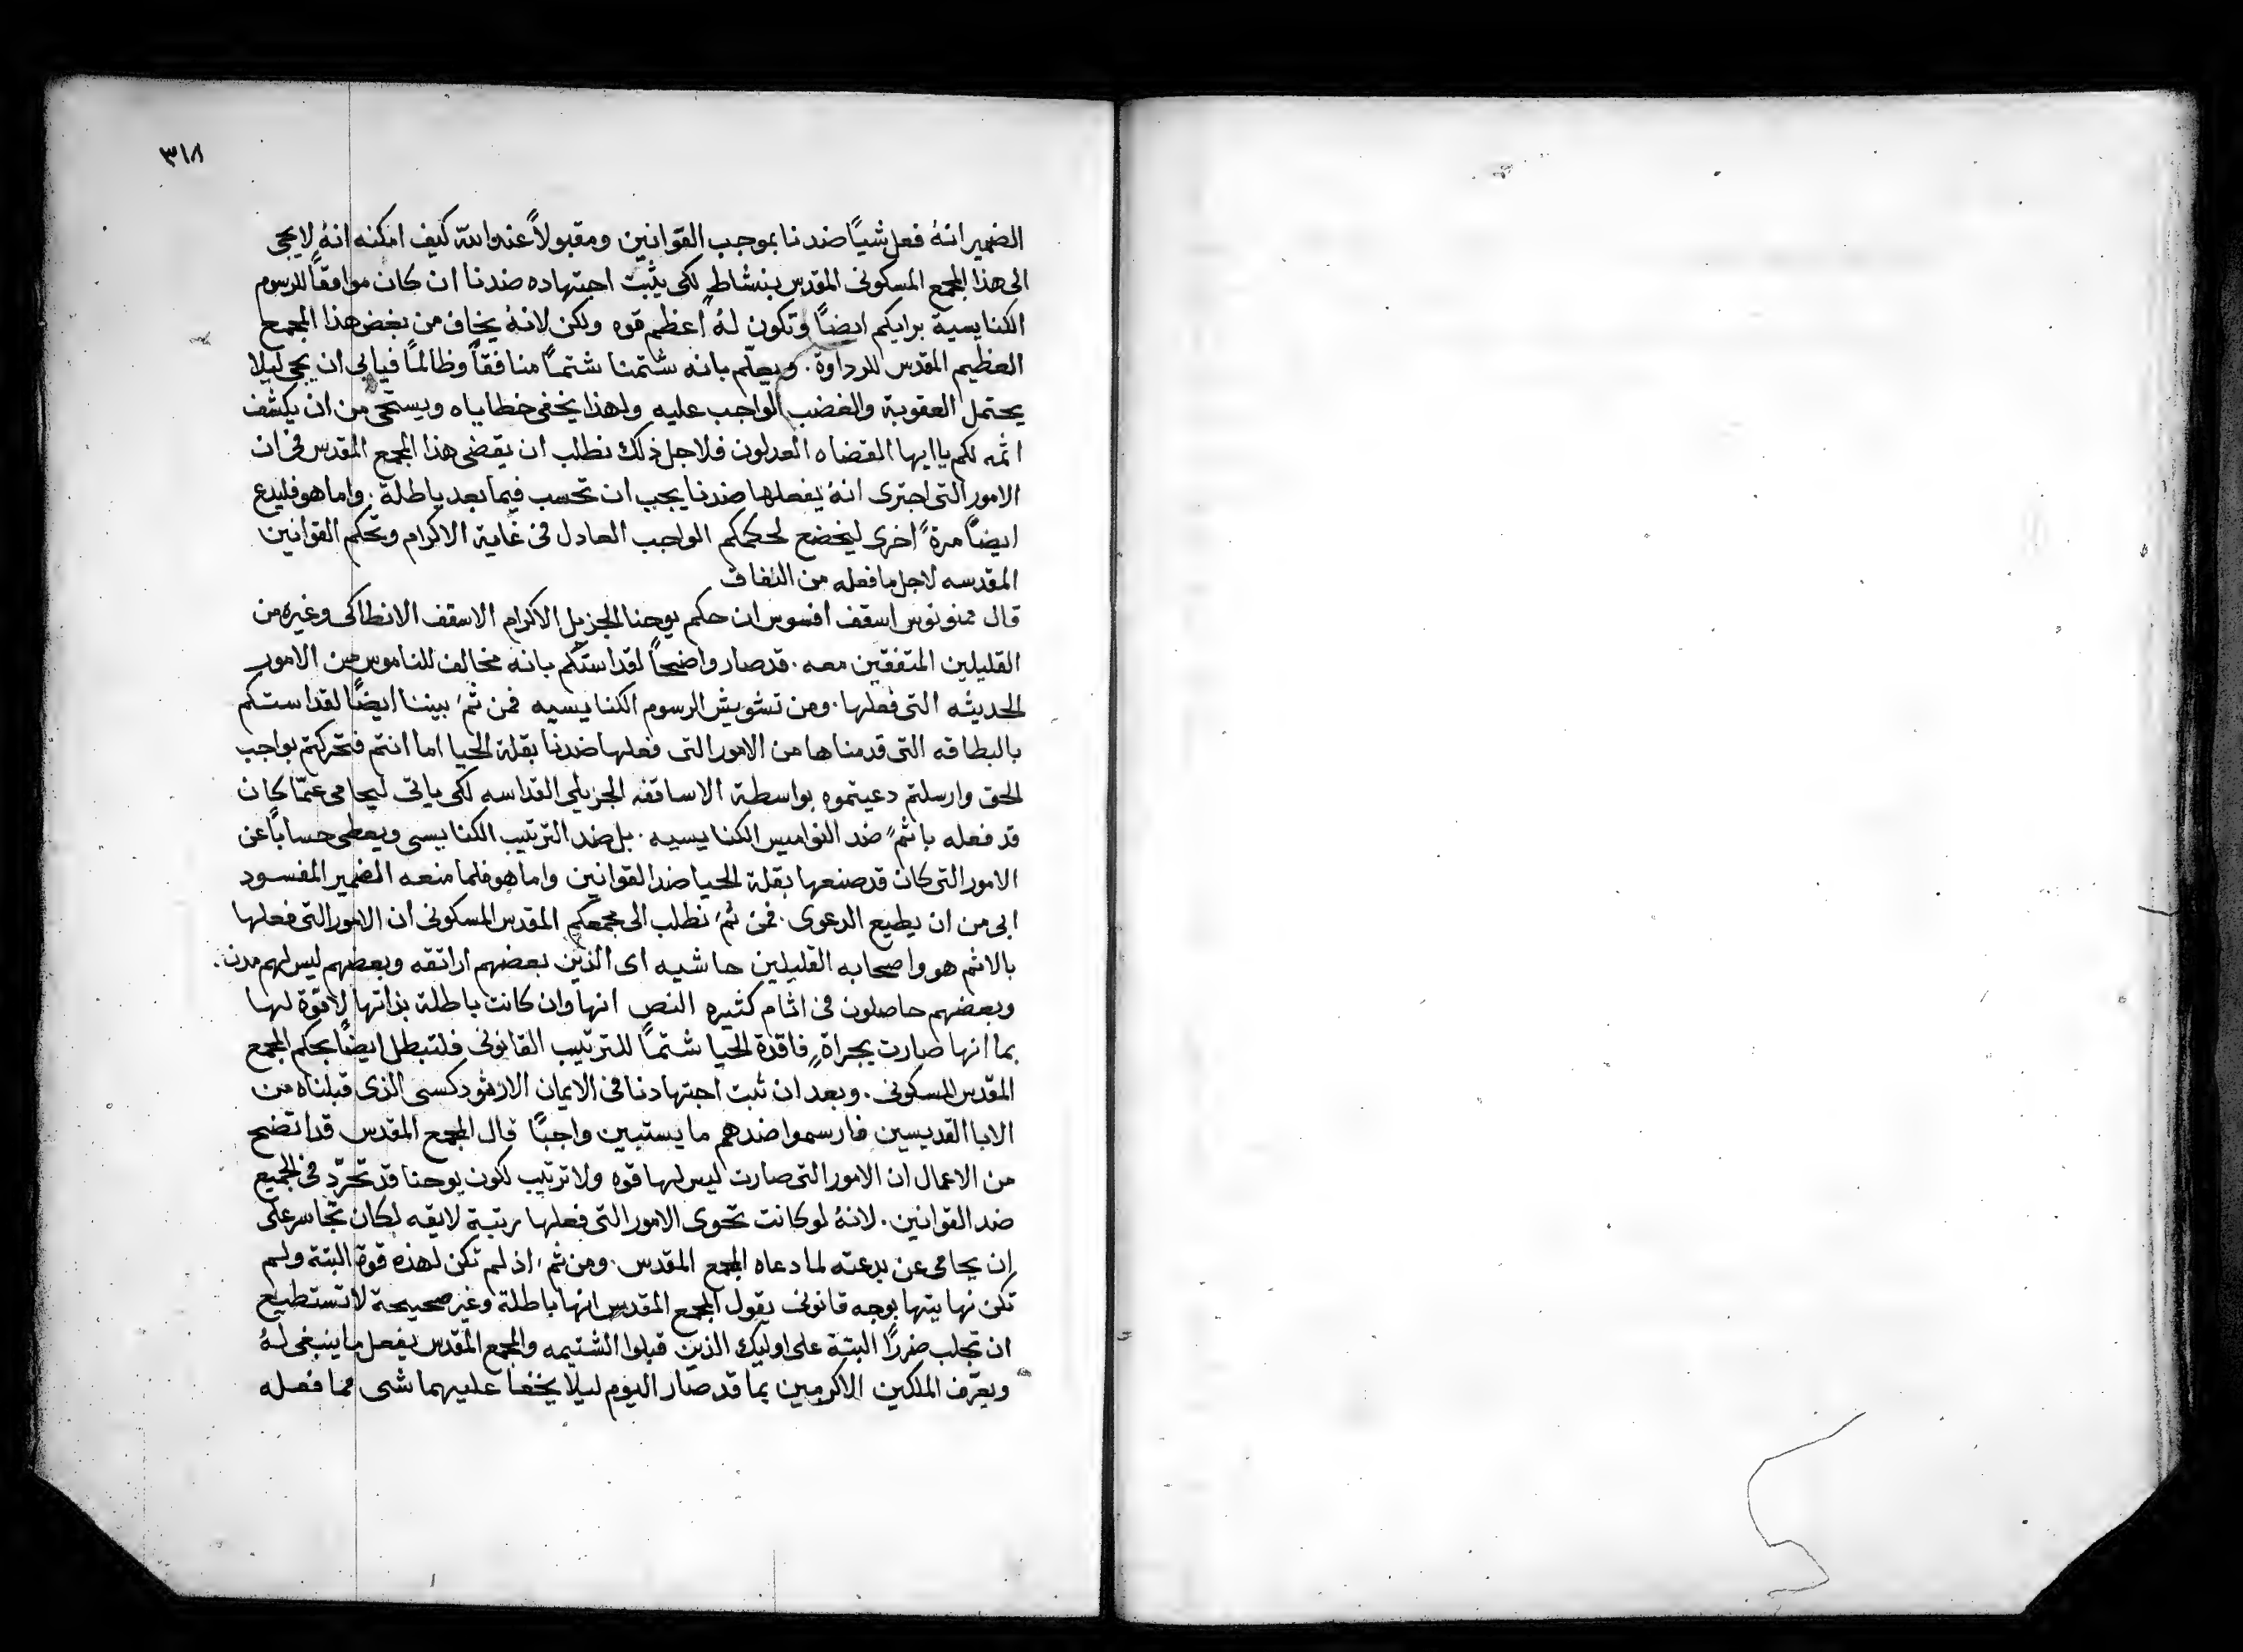 ٣١٨
الضمير انهُ فعل شيًا ضدنا بموجب القوانين ومقبولاً عند الله كيف امكنه انهُ لا يجى
الى هذا المجمع المسكونى المقدس بنشاطٍ لكى يثبت اجتهاده ضدنا ان كان موافقًا للرسوم
الكنايسية برايكم ايضًا وتكون لهُ اعظم قوه ولكن لانهُ يخاف من بغض هذا المجمع
العظيم المقدس للرداوة. ويعلم بانه شتمنا شتمًا منافقًا وظالمًا فيابى ان يجى ليلا
يحتمل العقوبة والغضب الواجب عليه ولهذا يخفى خطاياه ويستحى من ان يكشف
اثمه لكم ياايها القضاه العدلون فلاجل ذلك نطلب ان يقضى هذا المجمع المقدس فى ان
الامور التى اجترى انهُ يفعلها ضدنا يجب ان تحسب فيما بعد باطلة. واما هو فليدع
ايضًا مرةً اخرى ليخضع لحكمكم الواجب العادل فى غاية الاكرام وتحكم القوانين
المقدسه لاجل ما فعله من النفاق
قال ممنونوس اسقف افسوس ان حكم يوحنا الجزيل الاكرام الاسقف الانطاكى وغيره من
القليلين المتفقين معه. قد صار واضحًا لقداستكم بانه مخالف للناموس من الامور
الحديثه التى فعلها. ومن تشويش الرسوم الكنايسيه فمن ثم بيننا ايضًا لقداستكم
بالبطاقه التى قدمناها من الامور التى فعلها ضدنا بقلة الحيا اما انتم فتحركتم بواجب
الحق وارسلتم دعيتموه بواسطة الاساقفه الجزيلي القداسه لكى ياتى ليحامى عمّا كان
قد فعله باثمٍ ضد النواميس الكنايسيه. بل ضد الترتيب الكنايسى ويعطى حسابًا عن
الامور التى كان قد صنعها بقلة الحيا ضد القوانين واما هو فلما منعه الضمير المفسود
ابى من ان يطيع الدعوى. فمن ثم نطلب الى مجمعكم المقدس المسكونى ان الامور التى فعلها
بالاثم هو واصحابه القليلين حاشيه اى الذين بعضهم اراتقه وبعضهم ليس لهم مدن.
وبعضهم حاصلون فى اثام كثيره النص انها وان كانت باطلة بذاتها لا قوّة لها
بما انها صارت بجراةٍ فاقدة الحيا شتمًا للترتيب القانونى فلتبطل ايضًا بحكم المجمع
المقدس المسكونى. وبعد ان ثبت اجتهادنا فى الايمان الارثودكسى الذى قبلناه من
الابا القديسين فارسموا ضدهم ما يستبين واجبًا قال المجمع المقدس قد اتضح
من الاعمال ان الامور التى صارت ليس لها قوه ولا ترتيب لكون يوحنا قد تجرّد فى الجميع
ضد القوانين. لانهُ لو كانت تحوى الامور التى فعلها رتبة لايقه لكان تجاسر على
ان يحامى عن بدعته لما دعاه المجمع المقدس. ومن ثم اذ لم تكن لهذه قوة البتة ولم
تكن نهايتها بوجه قانونى يقول المجمع المقدس انها باطلة وغير صحيحة لا تستطيع
ان تجلب ضررًا البتة على اوليك الذين قبلوا الشتيمه والمجمع المقدس يفعل ما ينبغى لهُ
ويعرّف الملكين الاكرمين بما قد صار اليوم ليلا يخفا عليهما شى مما فعله